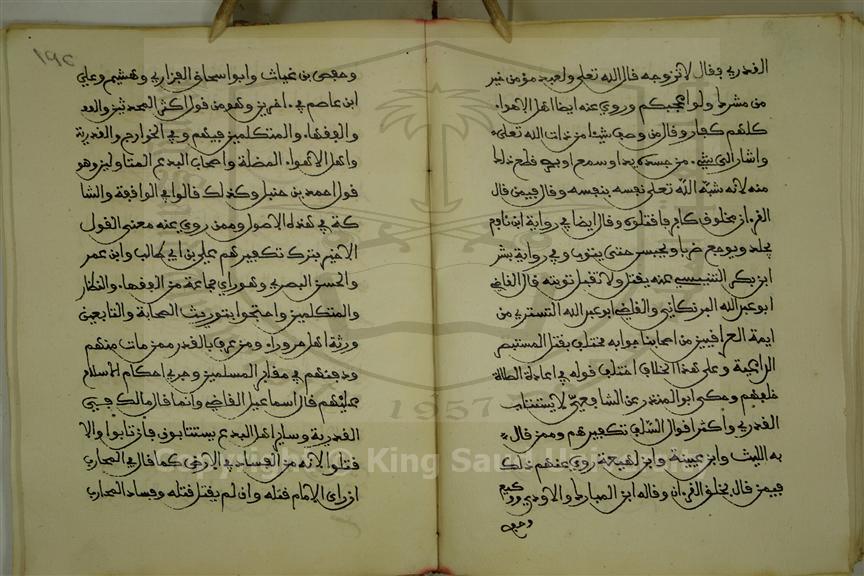 القدري فقال لا تزوجه قال الله تعلى ولعبد مؤمن خير
من مشرك ولو اعجبكم وروي عنه ايضا اهل الاهواء
كلهم كفار وقال من وصف شيئا من ذات الله تعلى
واشار الى شيء من جسده يد او سمع او بصر قطع ذلك
منه لانه شبه الله تعلى بنفسه وقال فيمن قال
القرءان مخلوق كافر فاقتلوه وقال ايضا في رواية ابن نافع
يجلد ويوجع ضربا ويحبس حتى يتوب وفي رواية بشر
ابن بكر التنيسي عنه يقتل ولا تقبل توبته قال القاضي
ابو عبد الله البرنكاني والقاضي ابو عبد الله التستري من
ايمة العرافيين من اصحابنا جوابه مختلف يقتل المستبصر
الداعية وعلى هذا الخلاف اختلف قوله في اعادة الصلاة
خلفهم وحكى ابن المنذر عن الشافعي لا يستتاب
القدري واكثر اقوال السلف تكفيرهم وممن قال
به الليث وابن عيينة وابن لهيعة روي عنهم ذلك
فيمن قال بخلق القرءان وقاله ابن المبارك والاودي ووكيع
وحفص
١٩٢
وحفص بن غياث وابو اسحاق الفزاري وهشيم وعلي
ابن عاصم في ءاخرين وهو من قول اكثر المحدثين والفقهاء
والمتكلمين فيهم وفي الخوارج والقدرية
واهل الاهواء المضلة واصحاب البدع المتاولين وهو
قول احمد بن حنبل وكذلك قالوا في الواقفة والشا
كة في هذه الاصول وممن روي عنه معنى القول
الاخر بترك تكفيرهم علي بن ابي طالب وابن عمر
والحسن البصري وهو راي جماعة من الفقهاء والنظار
والمتكلمين واحتجوا بتوريث الصحابة والتابعين
ورثة اهل حروراء ومن عرف بالقدر ممن مات منهم
ودفنهم في مقابر المسلمين وجري احكام الاسلام
عليهم قال اسماعيل القاضي وانما قال مالك في
القدرية وساير اهل البدع يستتابون فان تابوا والا
قتلوا لانه من الفساد في الارض كما قال في المحارب
ان راى الامام قتله وان لم يقتل قتله وفساد المحارب
1957
Copyright © King Saud University